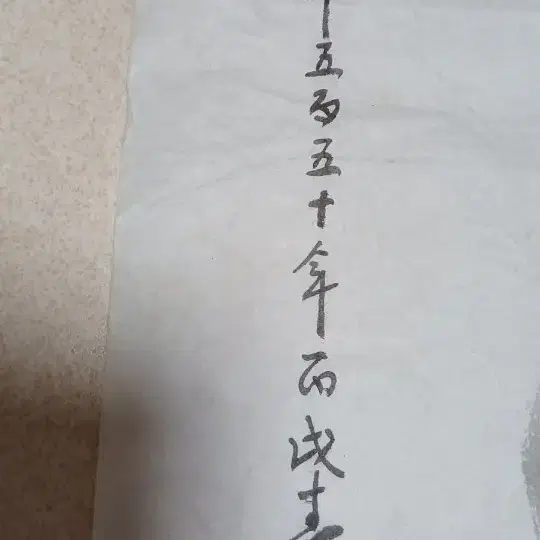 五百五十年丙戌春